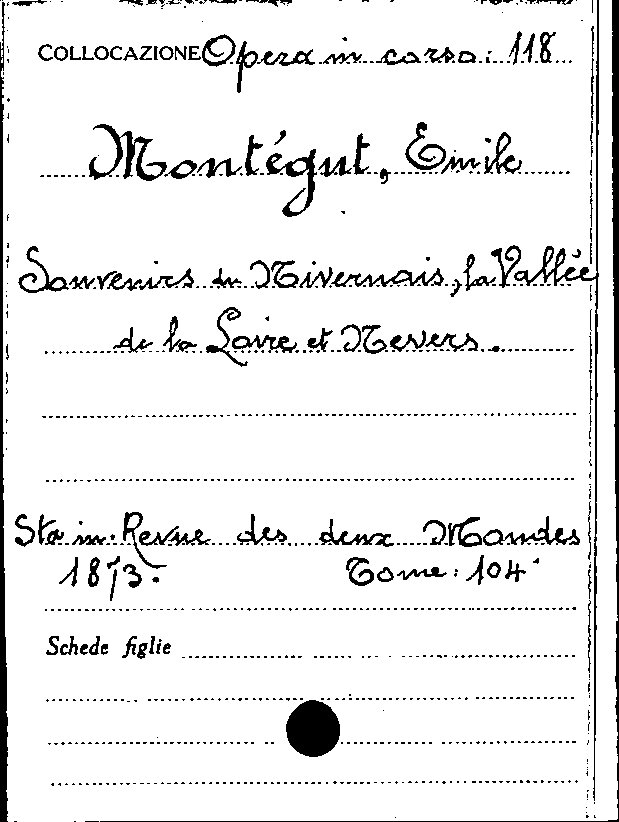 COLLOCAZIONE Opera in corso: 118
Montégut, Emile
Souvenirs du Nivernais, la Vallée
de la Loire et Nevers.
Sta in: Revue des deux Mondes
1873. Tome: 104
Schede figlie